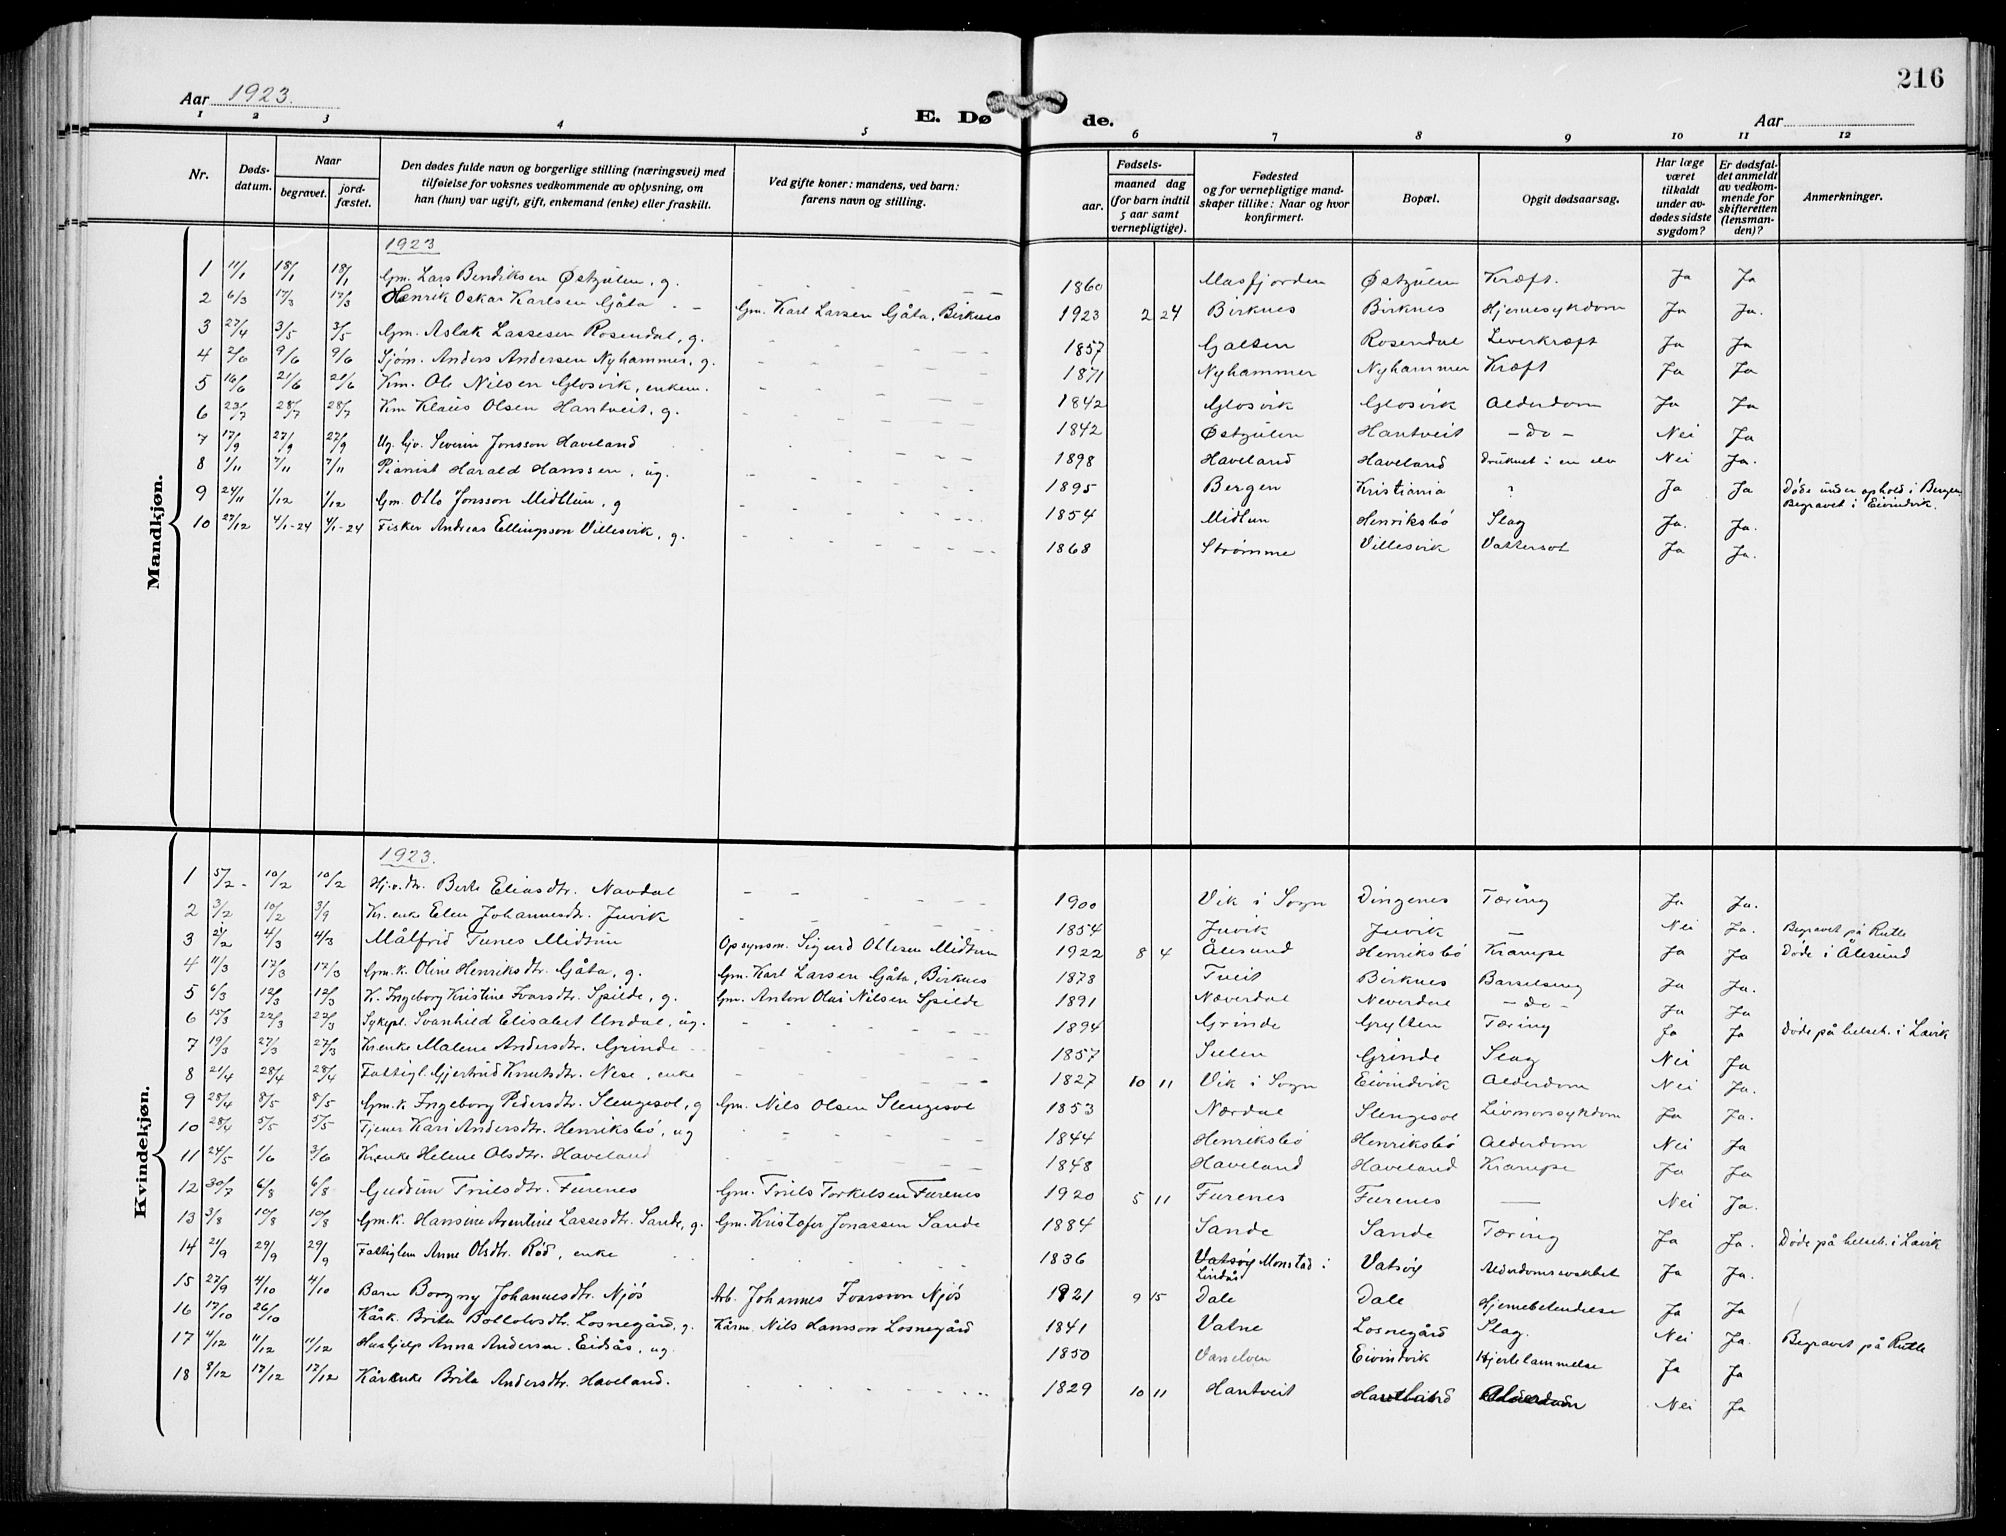 216
Aar 1923.
E. Døde.
Aar
1 2 3 4 5 6 7 8 9 10 11 12
Nr.
Døds-datum.
Naar
begravet.
jord-fæstet.
Den dødes fulde navn og borgerlige stilling (næringsvei) med
tilføielse for voksnes vedkommende av oplysning, om
han (hun) var ugift, gift, enkemand (enke) eller fraskilt.
Ved gifte koner: mandens, ved barn:
farens navn og stilling.
Fødsels-
aar.
maaned dag
(for barn indtil
5 aar samt
vernepligtige).
Fødested
og for vernepligtige mand-
skaper tillike: Naar og hvor
konfirmert.
Bopæl.
Opgit dødsaarsag.
Har læge
været
tilkaldt
under av-
dødes sidste
sygdom?
Er dødsfal-
det anmeldt
av vedkom-
mende for
skifteretten
(lensman-
den)?
Anmerkninger.
Mandkjøn.
1923
1 11/1 18/1 18/1 Gm. Lars Bendiksen Østgulen, g. 1860 Masfjorden Østgulen Kræft. Ja Ja
2 6/3 17/3 17/3 Henrik Oskar Karlsen Gåta Gm. Karl Larsen Gåta, Birknes 1923 2 24 Birknes Birknes Hjernesykdom Ja Ja.
3 27/4 3/5 3/5 Gm. Aslak Lassesen Rosendal, g. 1857 Galten Rosendal Leverkræft Ja Ja
4 2/6 9/6 9/6 Sjøm. Anders Andersen Nyhammer, g. 1871 Nyhammer Nyhammer Kræft Ja Ja
5 16/6 21/6 21/6 Km. Ole Nilsen Glosvik, enkem. 1842 Glosvik Glosvik Alderdom Ja Ja
6 23/7 28/7 28/7 Km Klaus Olsen Hantveit, g. 1842 Østgulen Hantveit - do - Nei Ja
7 17/9 27/9 27/9 Ug. Gjv. Severin Jonsson Haveland 1898 Haveland Haveland druknet i en elv Nei Ja.
8 1/11 7/11 7/11 Pianist Harald Hanssen, ug. 1895 Bergen Kristiania ? Ja Ja Døde under ophold i Bergen
Begravet i Eivindvik.
9 24/11 1/12 1/12 Gm. Otto Jonsson Midttun, g 1854 Midtun Henriksbø Slag Ja. Ja.
10 27/12 4/1-24 4/1-24 Fisker Andreas Ellingsson Villesvik, g. 1868 Strømme Villesvik Vattersot Ja Ja.
Kvindekjøn.
1923.
1 5/2 10/2 10/2 Hj.v.dtr. Berte Eliasdtr. Navdal 1900 Vik i Sogn Dingenes Tæring Ja Ja.
2 3/2 10/2 3/9 Kr. enke Elen Johannesdtr. Juvik 1854 Juvik Juvik — Nei Ja. Begravet på Rutle
3 21/2 4/3 4/3 Målfrid Tunes Midttun Opsynsm. Sigurd Ottesen Midttun 1922 8 4 Ålesund Henriksbø Krampe Ja Ja Døde i Ålesund
4 11/3 17/3 17/3 Gm.k. Oline Henriksdtr. Gåta, g. Gm. Karl Larsen Gåta, Birknes 1878 Tveit Birknes Barselseng Ja Ja.
5 6/3 12/3 12/3 K. Ingeborg Kristine Ivarsdtr. Spilde, g. Gm. Anton Olai Nilsen Spilde 1891 Næverdal Neverdal - do - Ja Ja
6 15/3 22/3 22/3 Sykepl. Svanhild Elisabet Undal, ug. 1894 Grinde Grytten Tæring Ja Ja Døde på helseh. i Lavik
7 19/3 27/3 27/3 Kr.enke Malene Andersdtr. Grinde 1857 Sulen Grinde Slag Nei Ja
8 21/4 28/4 28/4 Fattigl. Gjertrud Knutsdtr. Nese, enke 1827 10 11 Vik i Sogn Eivindvik Alderdom Nei Ja.
9 28/4 8/5 8/5 Gm.k Ingeborg Pedersdtr. Slengesol, g Gm. Nils Olsen Slengesol 1853 Nærdal Slengesol Livmorssykdom Ja Ja.
10 28/4 5/5 5/5 Tjener Kari Andersdtr. Henriksbø, ug 1844 Henriksbø Henriksbø Alderdom Nei Ja
11 24/5 1/6 3/6 Kr.enke Helene Olsdtr. Haveland 1848 Haveland Haveland Krampe Ja Ja
12 30/7 6/8 6/8 Gudrun Trulsdtr. Furenes Gm. Truls Torkelsen Furenes 1920 5 11 Furenes Furenes — Nei Ja.
13 3/8 10/8 10/8 Gm.k. Hansine Arentine Lassesdtr. Sande, g. Gm. Kristofer Jonassen Sande 1884 Sande Sande Tæring Ja Ja. Døde på helseh. i Lavik
14 21/9 29/9 29/9 Fattiglem Anne Olsdtr. Rød, enke 1836 Vatsøy Monstad i
Lindås Vatsøy Alderdomssvakhet Ja Ja.
15 27/9 4/10 4/10 Barn Borgny Johannesdtr. Njøs Arb. Johannes Ivarsson Njøs 1921 9 15 Dale Dale Hjernebetendelse Ja Ja
16 17/10 26/10 Kårk. Brita Bottolvsdtr. Losnegård, g. Kårm. Nils Hansson Losnegård 1841 Vatne Losnegård Slag. Nei Ja. Begravet på Rutle
17 4/12 11/12 11/12 Hushjelp Anna Andersen Eidsås, ug. 1850 Vanelven Eivindvik Hjertelammelse Ja Ja
18 8/12 17/12 17/12 Kårenke Brita Andersdtr. Haveland. 1829 10 11 Hantveit Alderdom Nei Ja